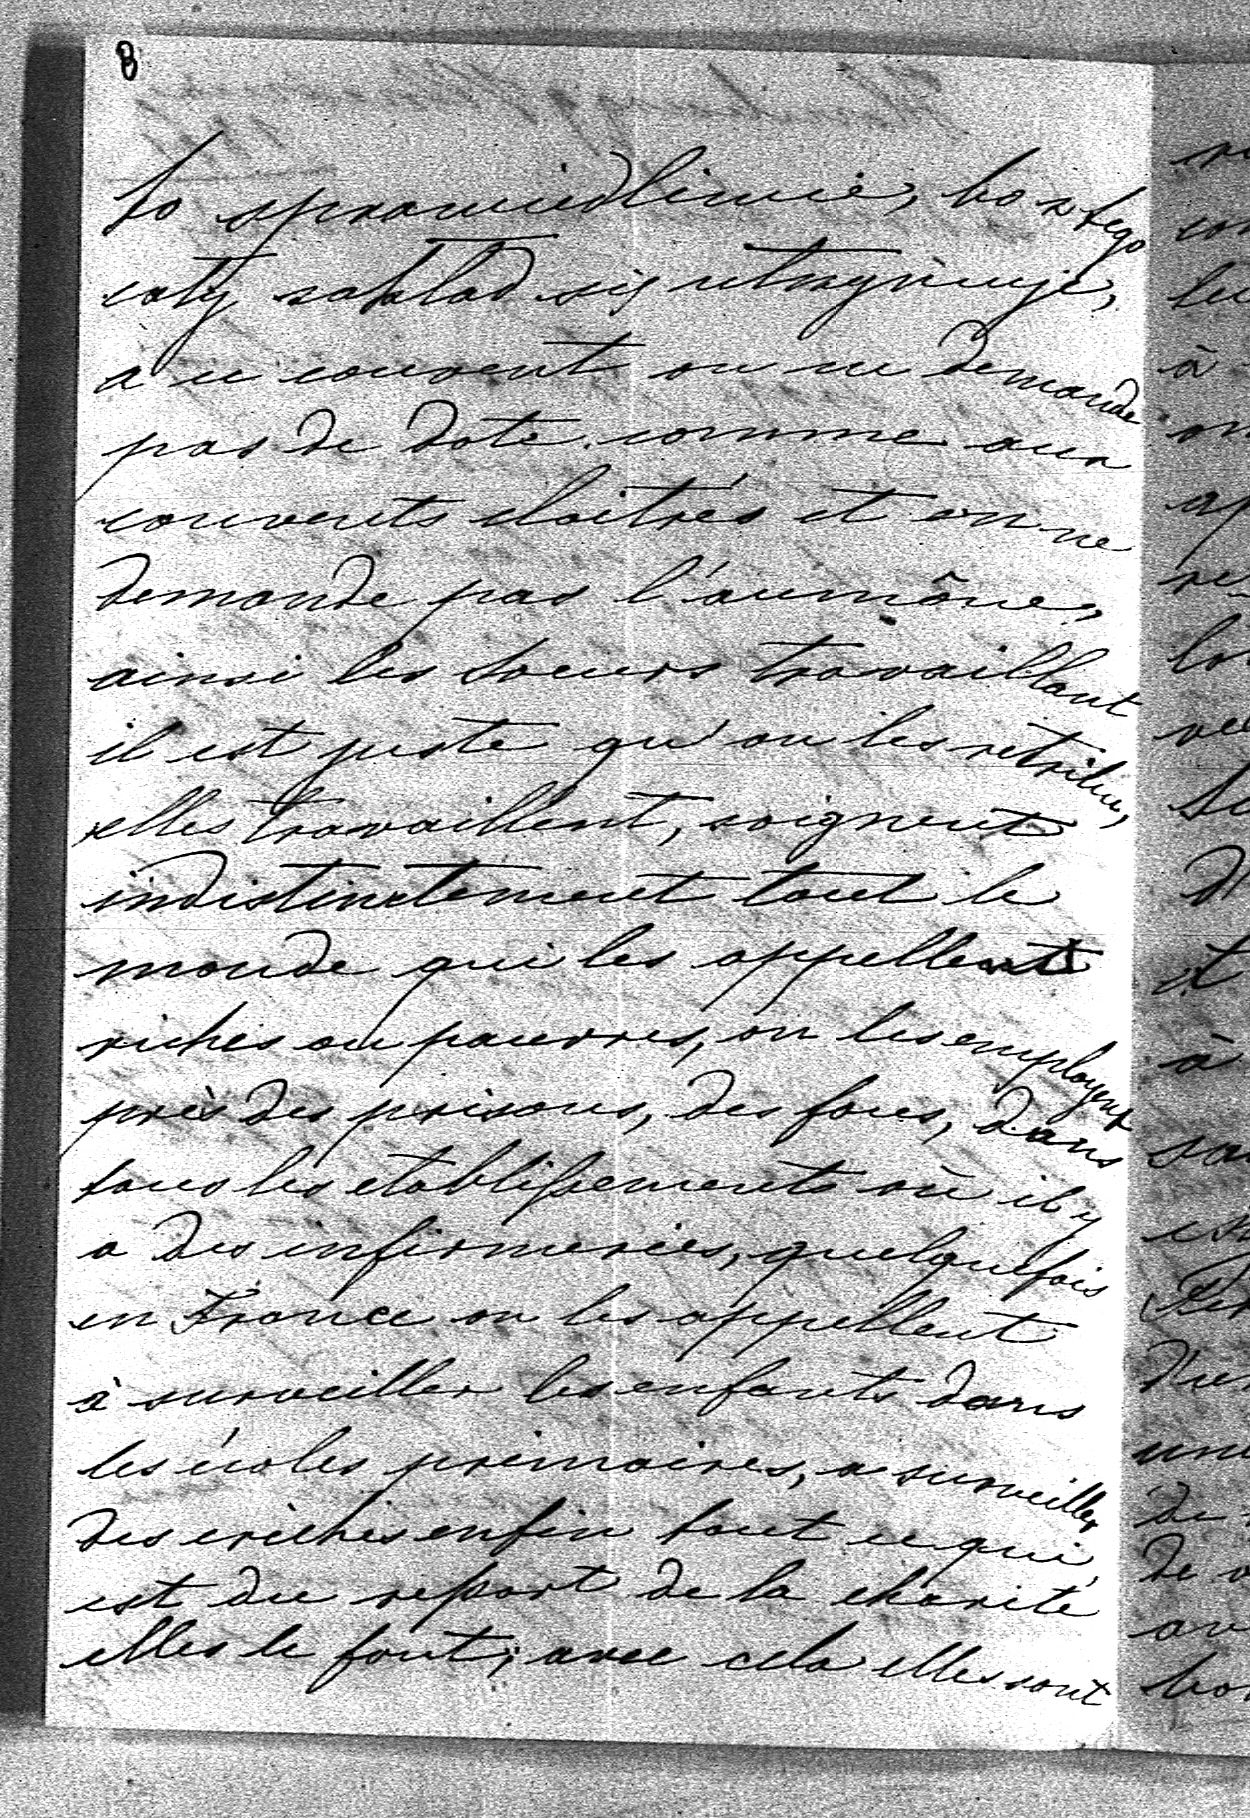 8
to sprawiedliwie, bo z tego
cały zakład się utrzymuje,
a ce couvent on ne demande
pas de dote comme aux
couvents cloitrés et on ne
demande pas l'aumône,
ainsi les soeurs travaillant
il est juste qu'on les retribue,
elles travaillent, soignent
indistinctement tout le
monde qui les appellent
riches ou pauvres, on les employent
près des prisons, des fous, dans
tous les etablissements où il y
a des infirmeries, quelquefois
en France on les appellent
à surveiller les enfants dans
les écoles primaires, a surveiller
des crèches enfin tout ce qui
est du ressort de la charité
elles le font; avec cela elles sont